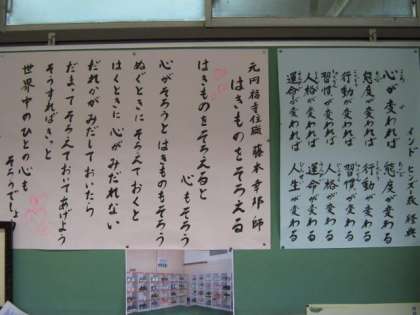 インド ヒンズー教 経典
心が変われば 態度が変わる
態度が変われば 行動が変わる
行動が変われば 習慣が変わる
習慣が変われば 人格が変わる
人格が変われば 運命が変わる
運命が変われば 人生が変わる
はきものをそろえる
元円福寺住職 藤本幸邦 師
はきものをそろえると
心もそろう
心がそろうとはきものもそろう
ぬぐときにそろえておくと
はくときに心がみだれない
だれかがみだしておいたら
だまってそろえておいてあげよう
そうすればきっと
世界中のひとの心も
そろうでしょう